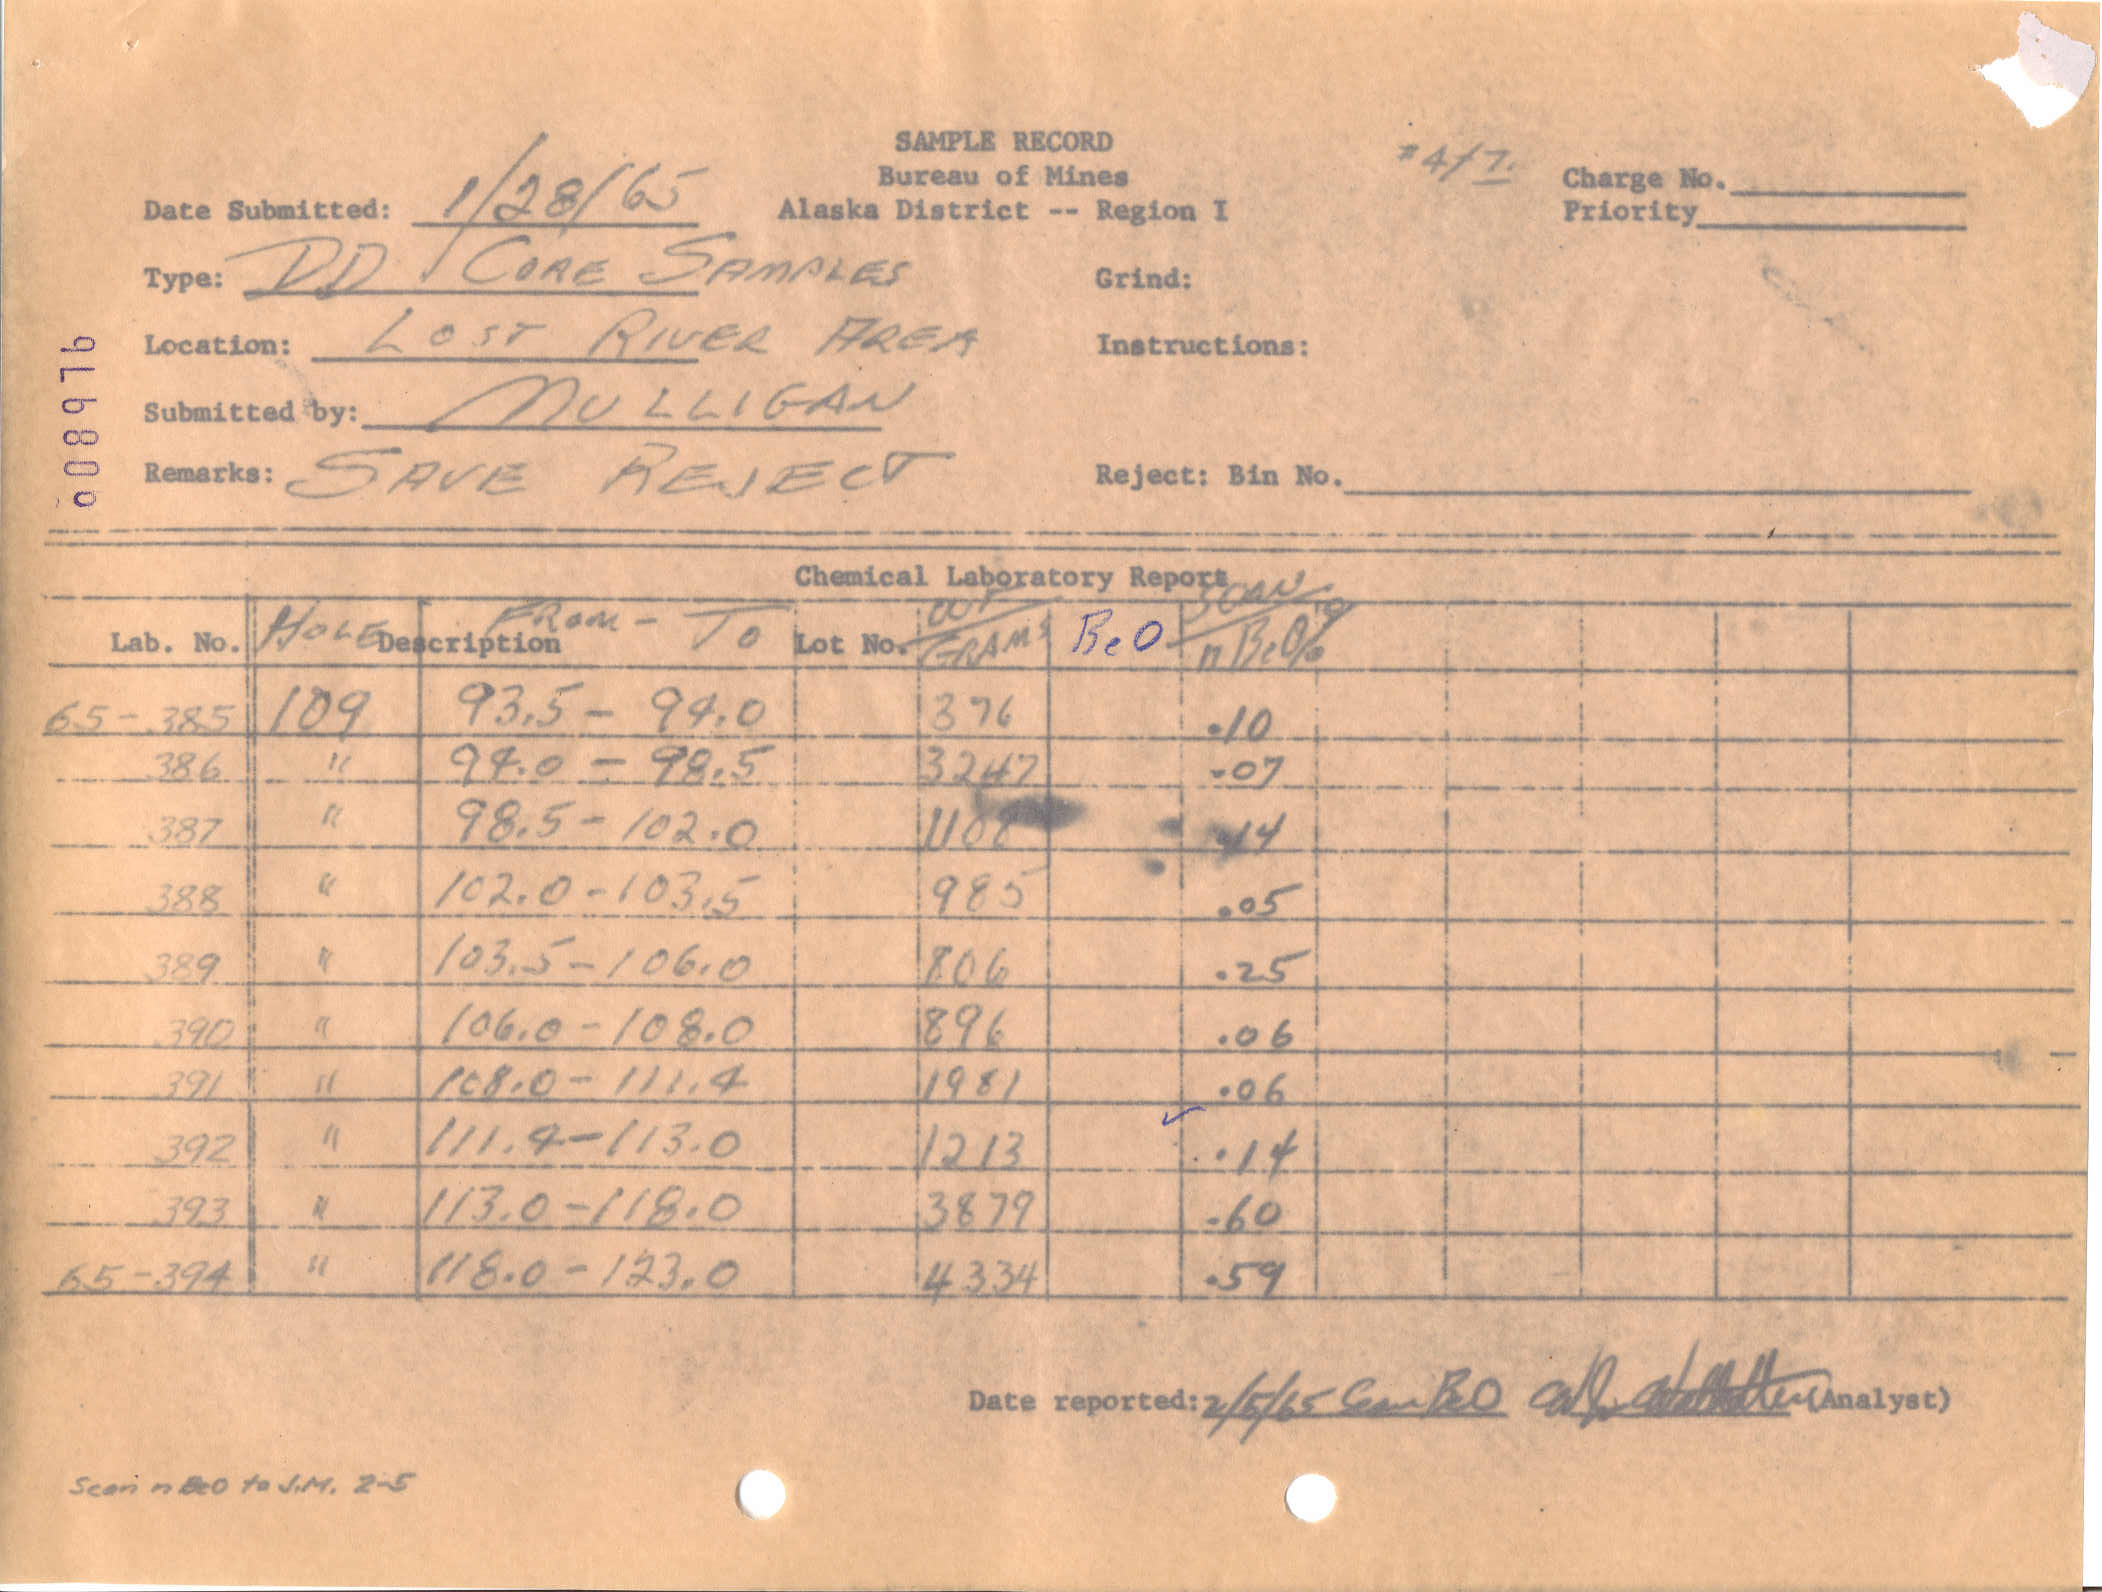 SAMPLE RECORD
Bureau of Mines
Alaska District -- Region I
#4/7.
Charge No.
Priority
Date Submitted: 1/28/65
Type: DD Core Samples
Grind:
Location: Lost River Area
Instructions:
Submitted by: Mulligan
Remarks: Save Reject
Reject: Bin No.
Chemical Laboratory Report
Lab. No. Hole Description From - To Lot No. WT GRAMS BeO SCAN n BeO%
65-385 109 93.5 - 94.0 376 .10
386 " 94.0 - 98.5 3247 .07
387 " 98.5 - 102.0 1108 .14
388 " 102.0 - 103.5 985 .05
389 " 103.5 - 106.0 806 .25
390 " 106.0 - 108.0 896 .06
391 " 108.0 - 111.4 1981 .06
392 " 111.4 - 113.0 1213 .14
393 " 113.0 - 118.0 3879 .60
65-394 " 118.0 - 123.0 4334 .59
Date reported: 2/5/65 Scan BeO (Analyst)
Scan n BeO to J.M. 2-5